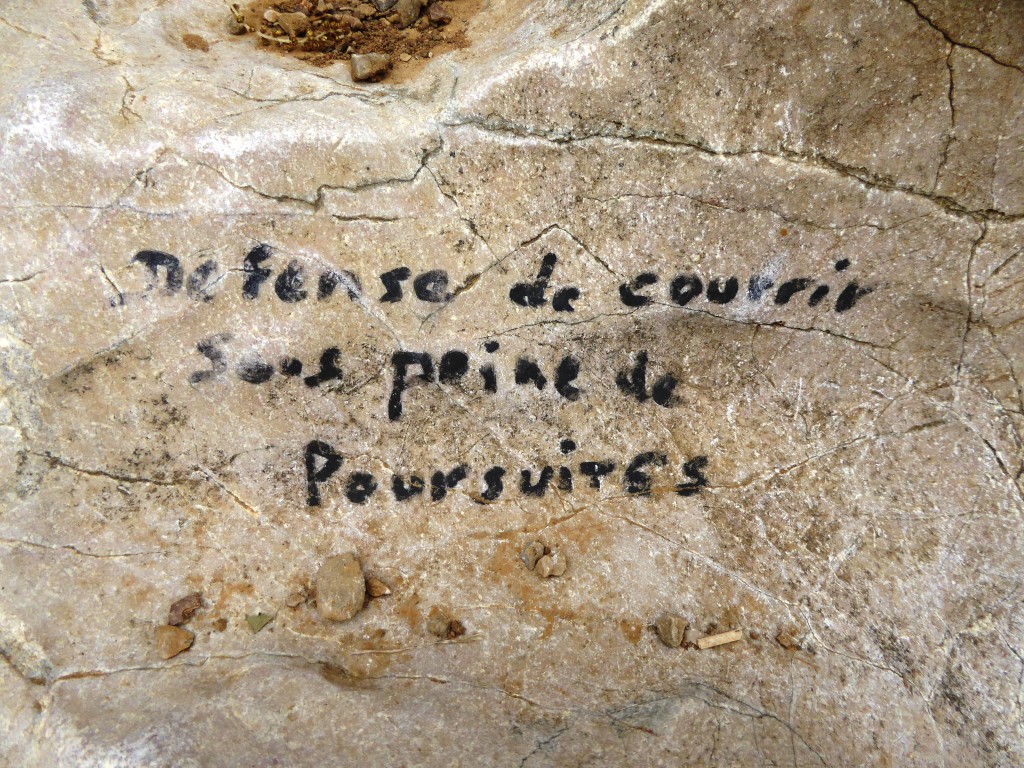 Defense de courrir
Sous peine de
Poursuites